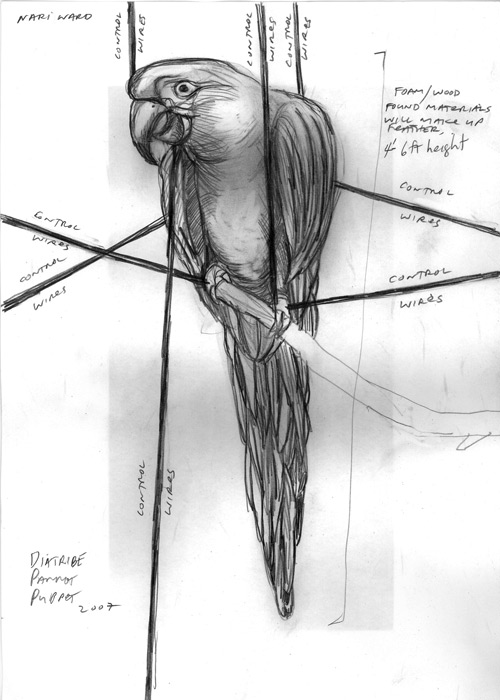 NARI WARD
CONTROL
WIRES
CONTROL
WIRES
CONTROL
WIRES
FOAM/WOOD
FOUND MATERIALS
WILL MAKE UP
FEATHER,
4'- 6 ft height
CONTROL
WIRES
CONTROL
WIRES
CONTROL
WIRES
CONTROL
WIRES
CONTROL
WIRES
DIATRIBE
PARROT
PUPPET
2007